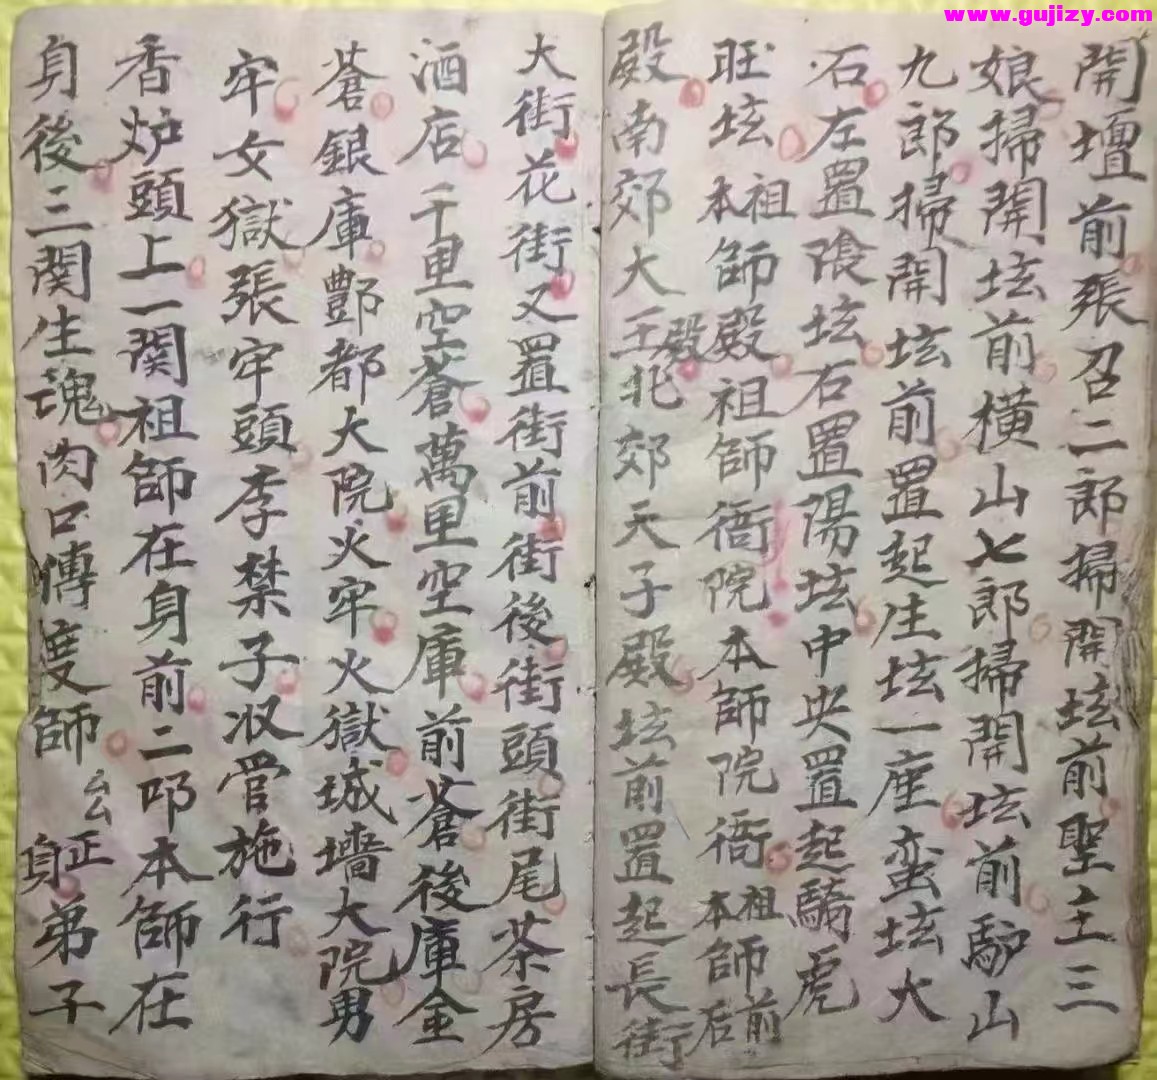 www.gujizy.com
開壇前張召二郎掃開坛前聖主三
娘掃開坛前橫山七郎掃開坛前馿山
九郎掃開坛前置起生坛一座蛮坛大
石左置陰坛石置陽坛中央置起驕虎
旺坛本祖師殿祖師衙院本師院衙本祖師前后
殿南郊大王殿北郊天子殿坛前置起長街
大街花街又置街前街後街頭街尾茶房
酒店千里空蒼萬里空庫前蒼後庫金
蒼銀庫酆都大院火牢火獄城墻大院男
牢女獄張牢頭李禁子收管施行
香炉頭上一関祖師在身前二叩本師在
身後三関生魂肉口傳度師厶正身弟子